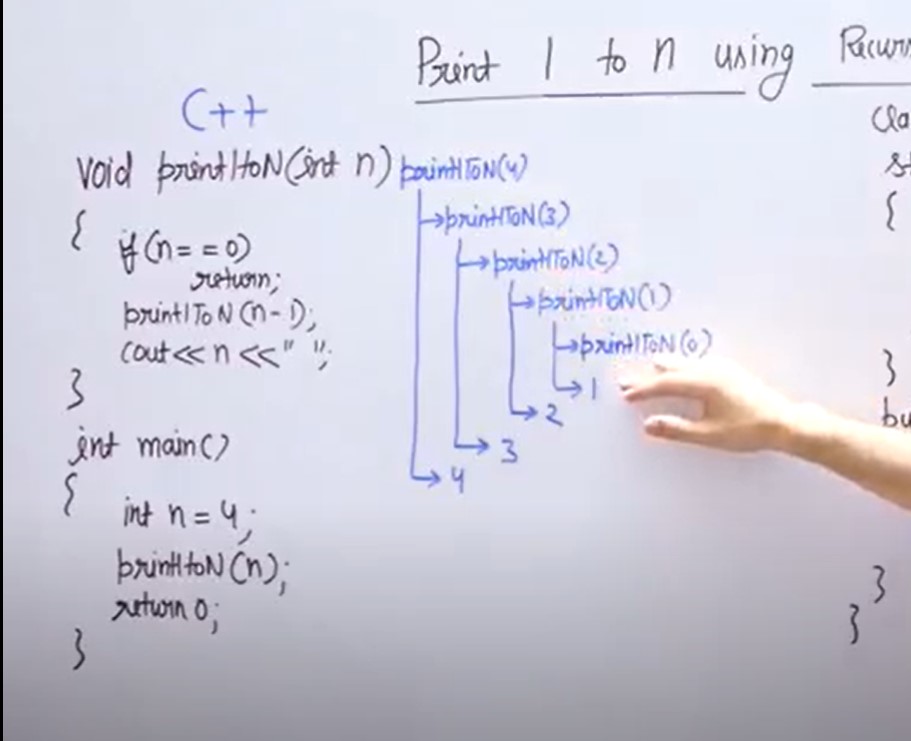 Print 1 to n using Recurs
C++
void print1toN(int n)
{
if(n==0)
return;
print1ToN(n-1);
cout<<n<<" ";
}
int main()
{
int n=4;
print1toN(n);
return 0;
}
print1ToN(4)
print1ToN(3)
print1ToN(2)
print1ToN(1)
print1ToN(0)
1
2
3
4
cla
st
{
}
pu
}
}